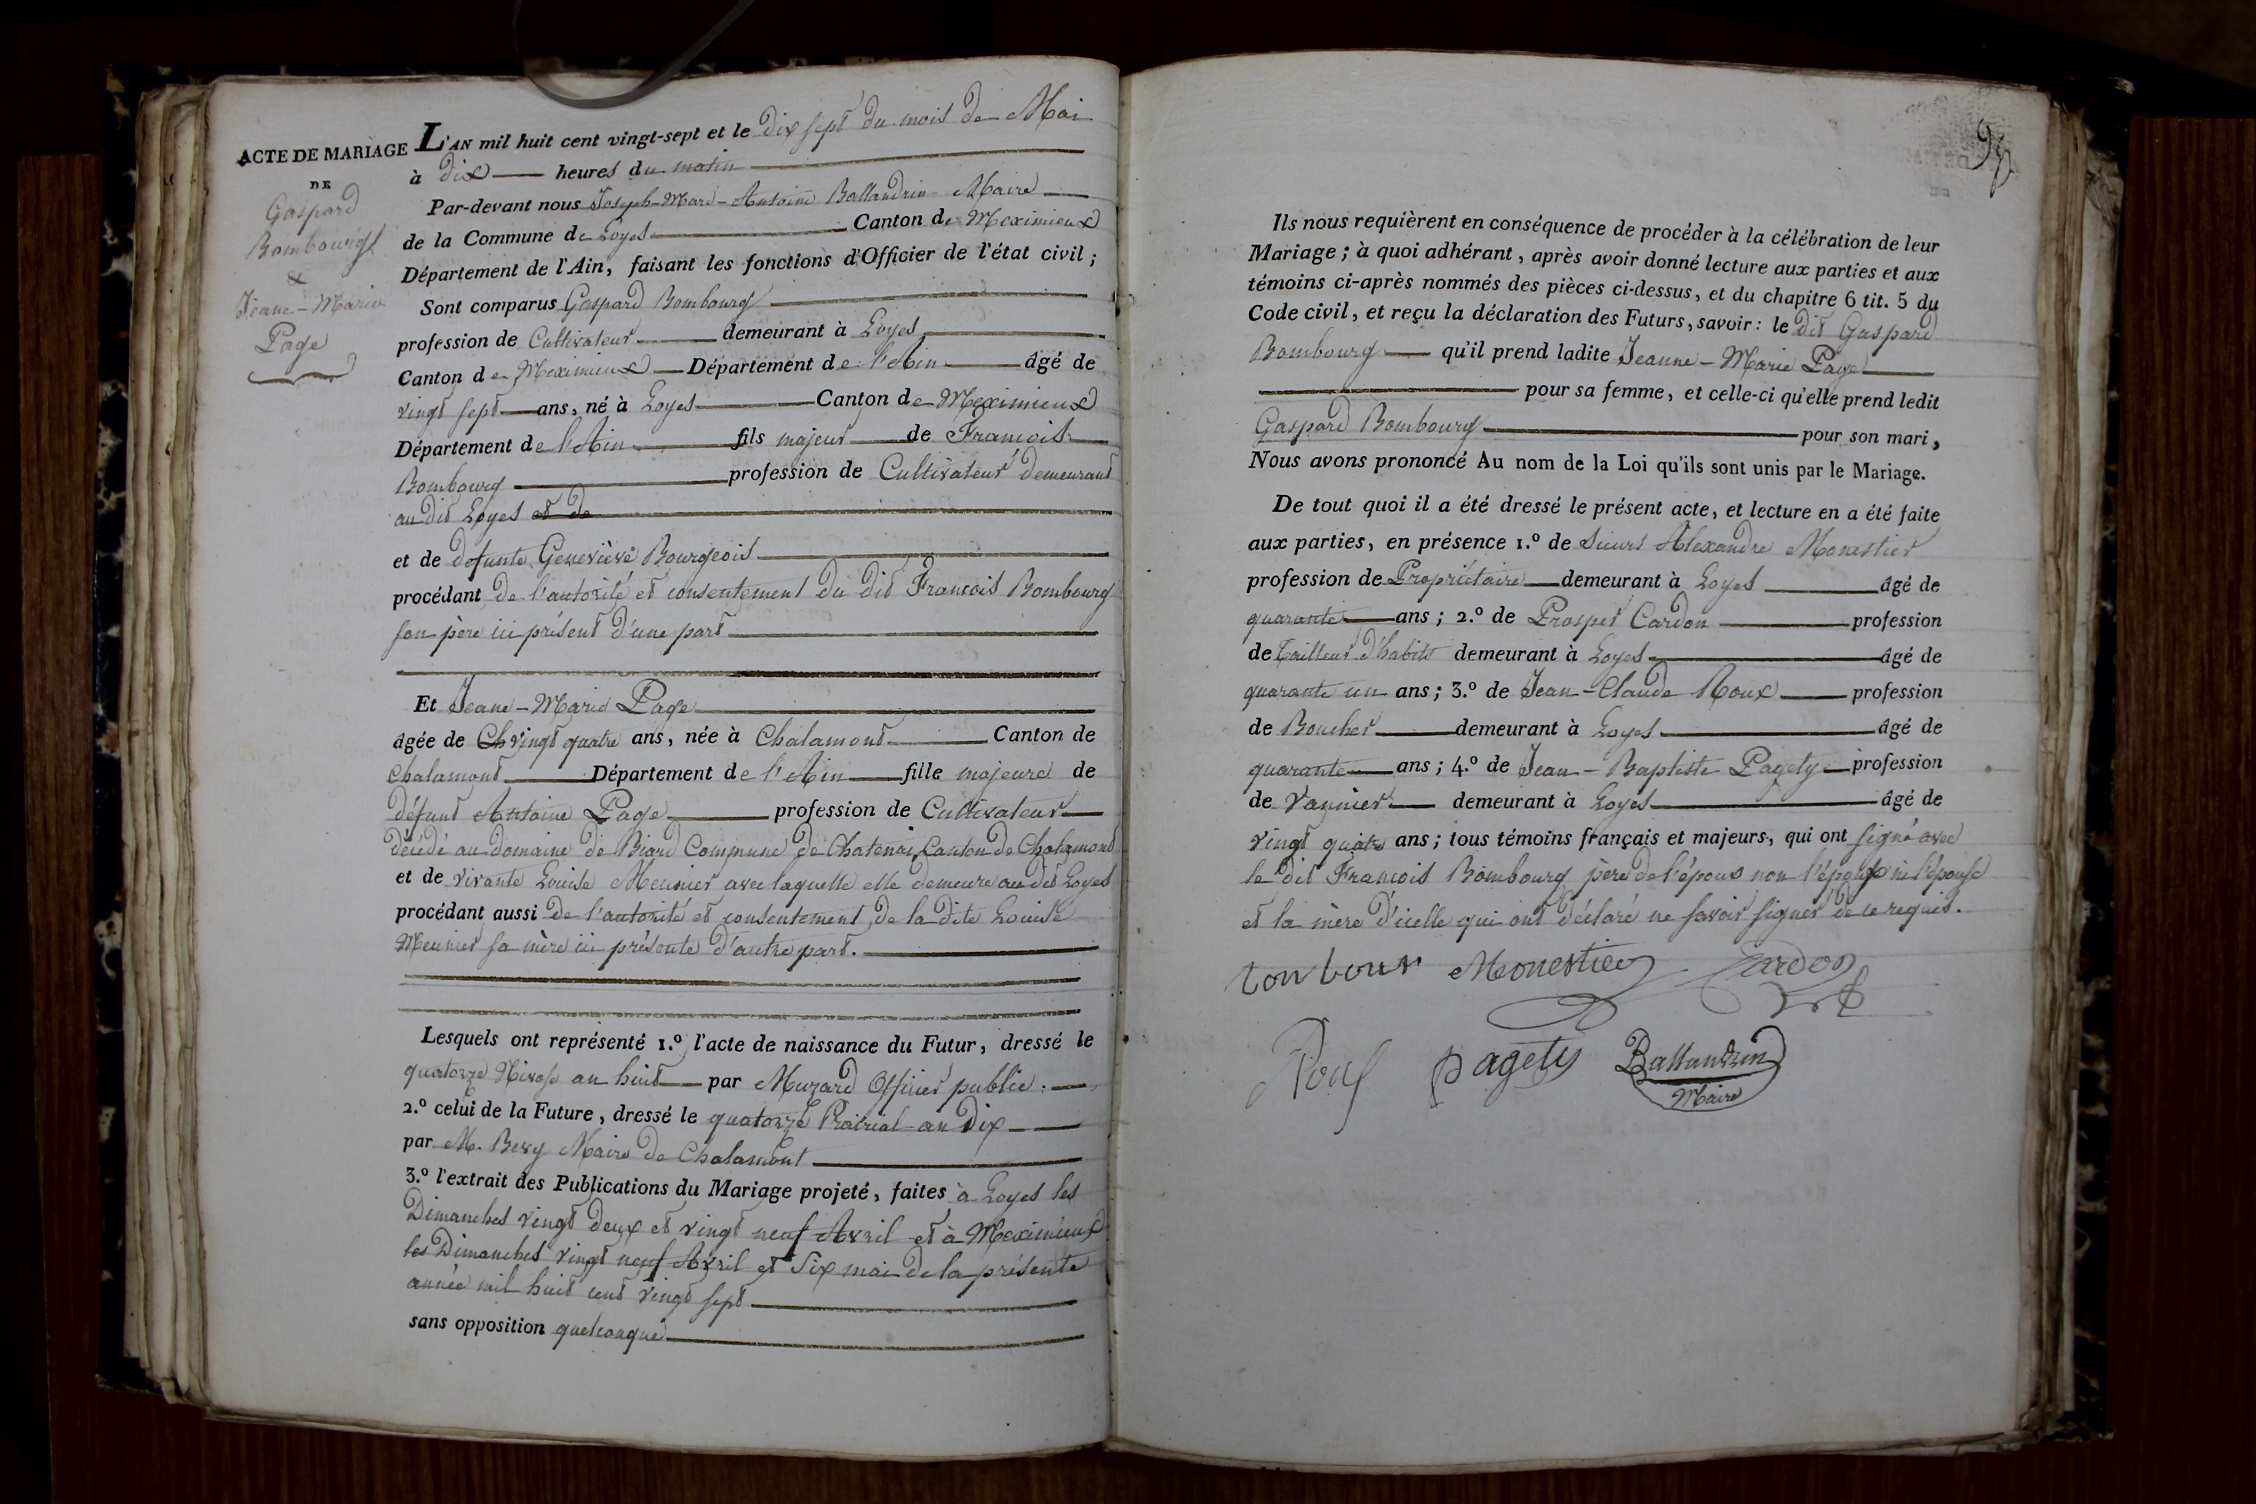 ACTE DE MARIAGE
DE
Gaspard
Bombourg
&
Jeanne-Marie
Page
L'AN mil huit cent vingt-sept et le dix sept du mois de Mai
à dix heures du matin
Par-devant nous Joseph-Marie-Antoine Ballandrin Maire
de la Commune de Loyes Canton de Meximieux
Département de l'Ain, faisant les fonctions d'Officier de l'état civil;
Sont comparus Gaspard Bombourg
profession de Cultivateur demeurant à Loyes
Canton de Meximieux Département de l'Ain âgé de
vingt sept ans, né à Loyes Canton de Meximieux
Département de l'Ain fils majeur de François
Bombourg profession de Cultivateur demeurant
au dit Loyes et de
et de defunte Geneviève Bourgeois
procédant de l'autorité et consentement du dit François Bombourg
son père ici présent d'une part
Et Jeane-Marie Page
âgée de Ch vingt quatre ans, née à Chalamont Canton de
Chalamont Département de l'Ain fille majeure de
défunt Antoine Page profession de Cultivateur
décédé au domaine de Biard Commune de Chatenai, Canton de Chalamont
et de vivante Louise Meunier avec laquelle elle demeure au dit Loyes
procédant aussi de l'autorité et consentement de la dite Louise
Meunier sa mère ici présente d'autre part.
Lesquels ont représenté 1.º l'acte de naissance du Futur, dressé le
quatorze Nivose an huit par Muzard Officier public.
2.º celui de la Future, dressé le quatorze Prairial an dix
par M. Bevy Maire de Chalamont
3.º l'extrait des Publications du Mariage projeté, faites à Loyes les
Dimanches vingt deux et vingt neuf Avril et à Meximieux
les Dimanches vingt neuf Avril et Six mai de la présente
année mil huit cent vingt sept
sans opposition quelconque
Ils nous requièrent en conséquence de procéder à la célébration de leur
Mariage; à quoi adhérant, après avoir donné lecture aux parties et aux
témoins ci-après nommés des pièces ci-dessus, et du chapitre 6 tit. 5 du
Code civil, et reçu la déclaration des Futurs, savoir: le dit Gaspard
Bombourg qu'il prend ladite Jeanne-Marie Page
pour sa femme, et celle-ci qu'elle prend ledit
Gaspard Bombourg pour son mari,
Nous avons prononcé Au nom de la Loi qu'ils sont unis par le Mariage.
De tout quoi il a été dressé le présent acte, et lecture en a été faite
aux parties, en présence 1.º de Sieurs Alexandre Monestier
profession de Propriétaire demeurant à Loyes âgé de
quarante ans; 2.º de Prosper Cardon profession
de Tailleur d'habits demeurant à Loyes âgé de
quarante un ans; 3.º de Jean-Claude Roux profession
de Boucher demeurant à Loyes âgé de
quarante ans; 4.º de Jean-Baptiste Pagety profession
de Vannier demeurant à Loyes âgé de
vingt quatre ans; tous témoins français et majeurs, qui ont signé avec
le dit François Bombourg père de l'époux non l'époux ni l'épouse
et la mère d'icelle qui ont déclaré ne savoir signer de ce requis.
bonbour Monestier Cardon
Roux pagety Ballandrin
Maire